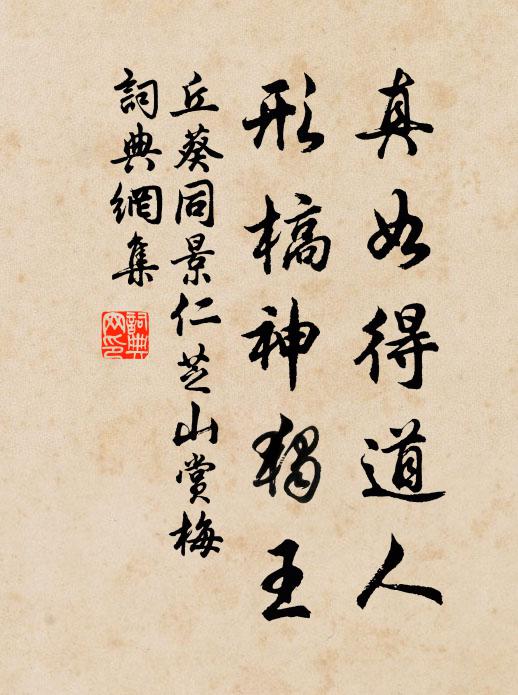 真如得道人
形槁神獨王
丘葵同景仁芝山賞梅
詞典網集
詞典網印